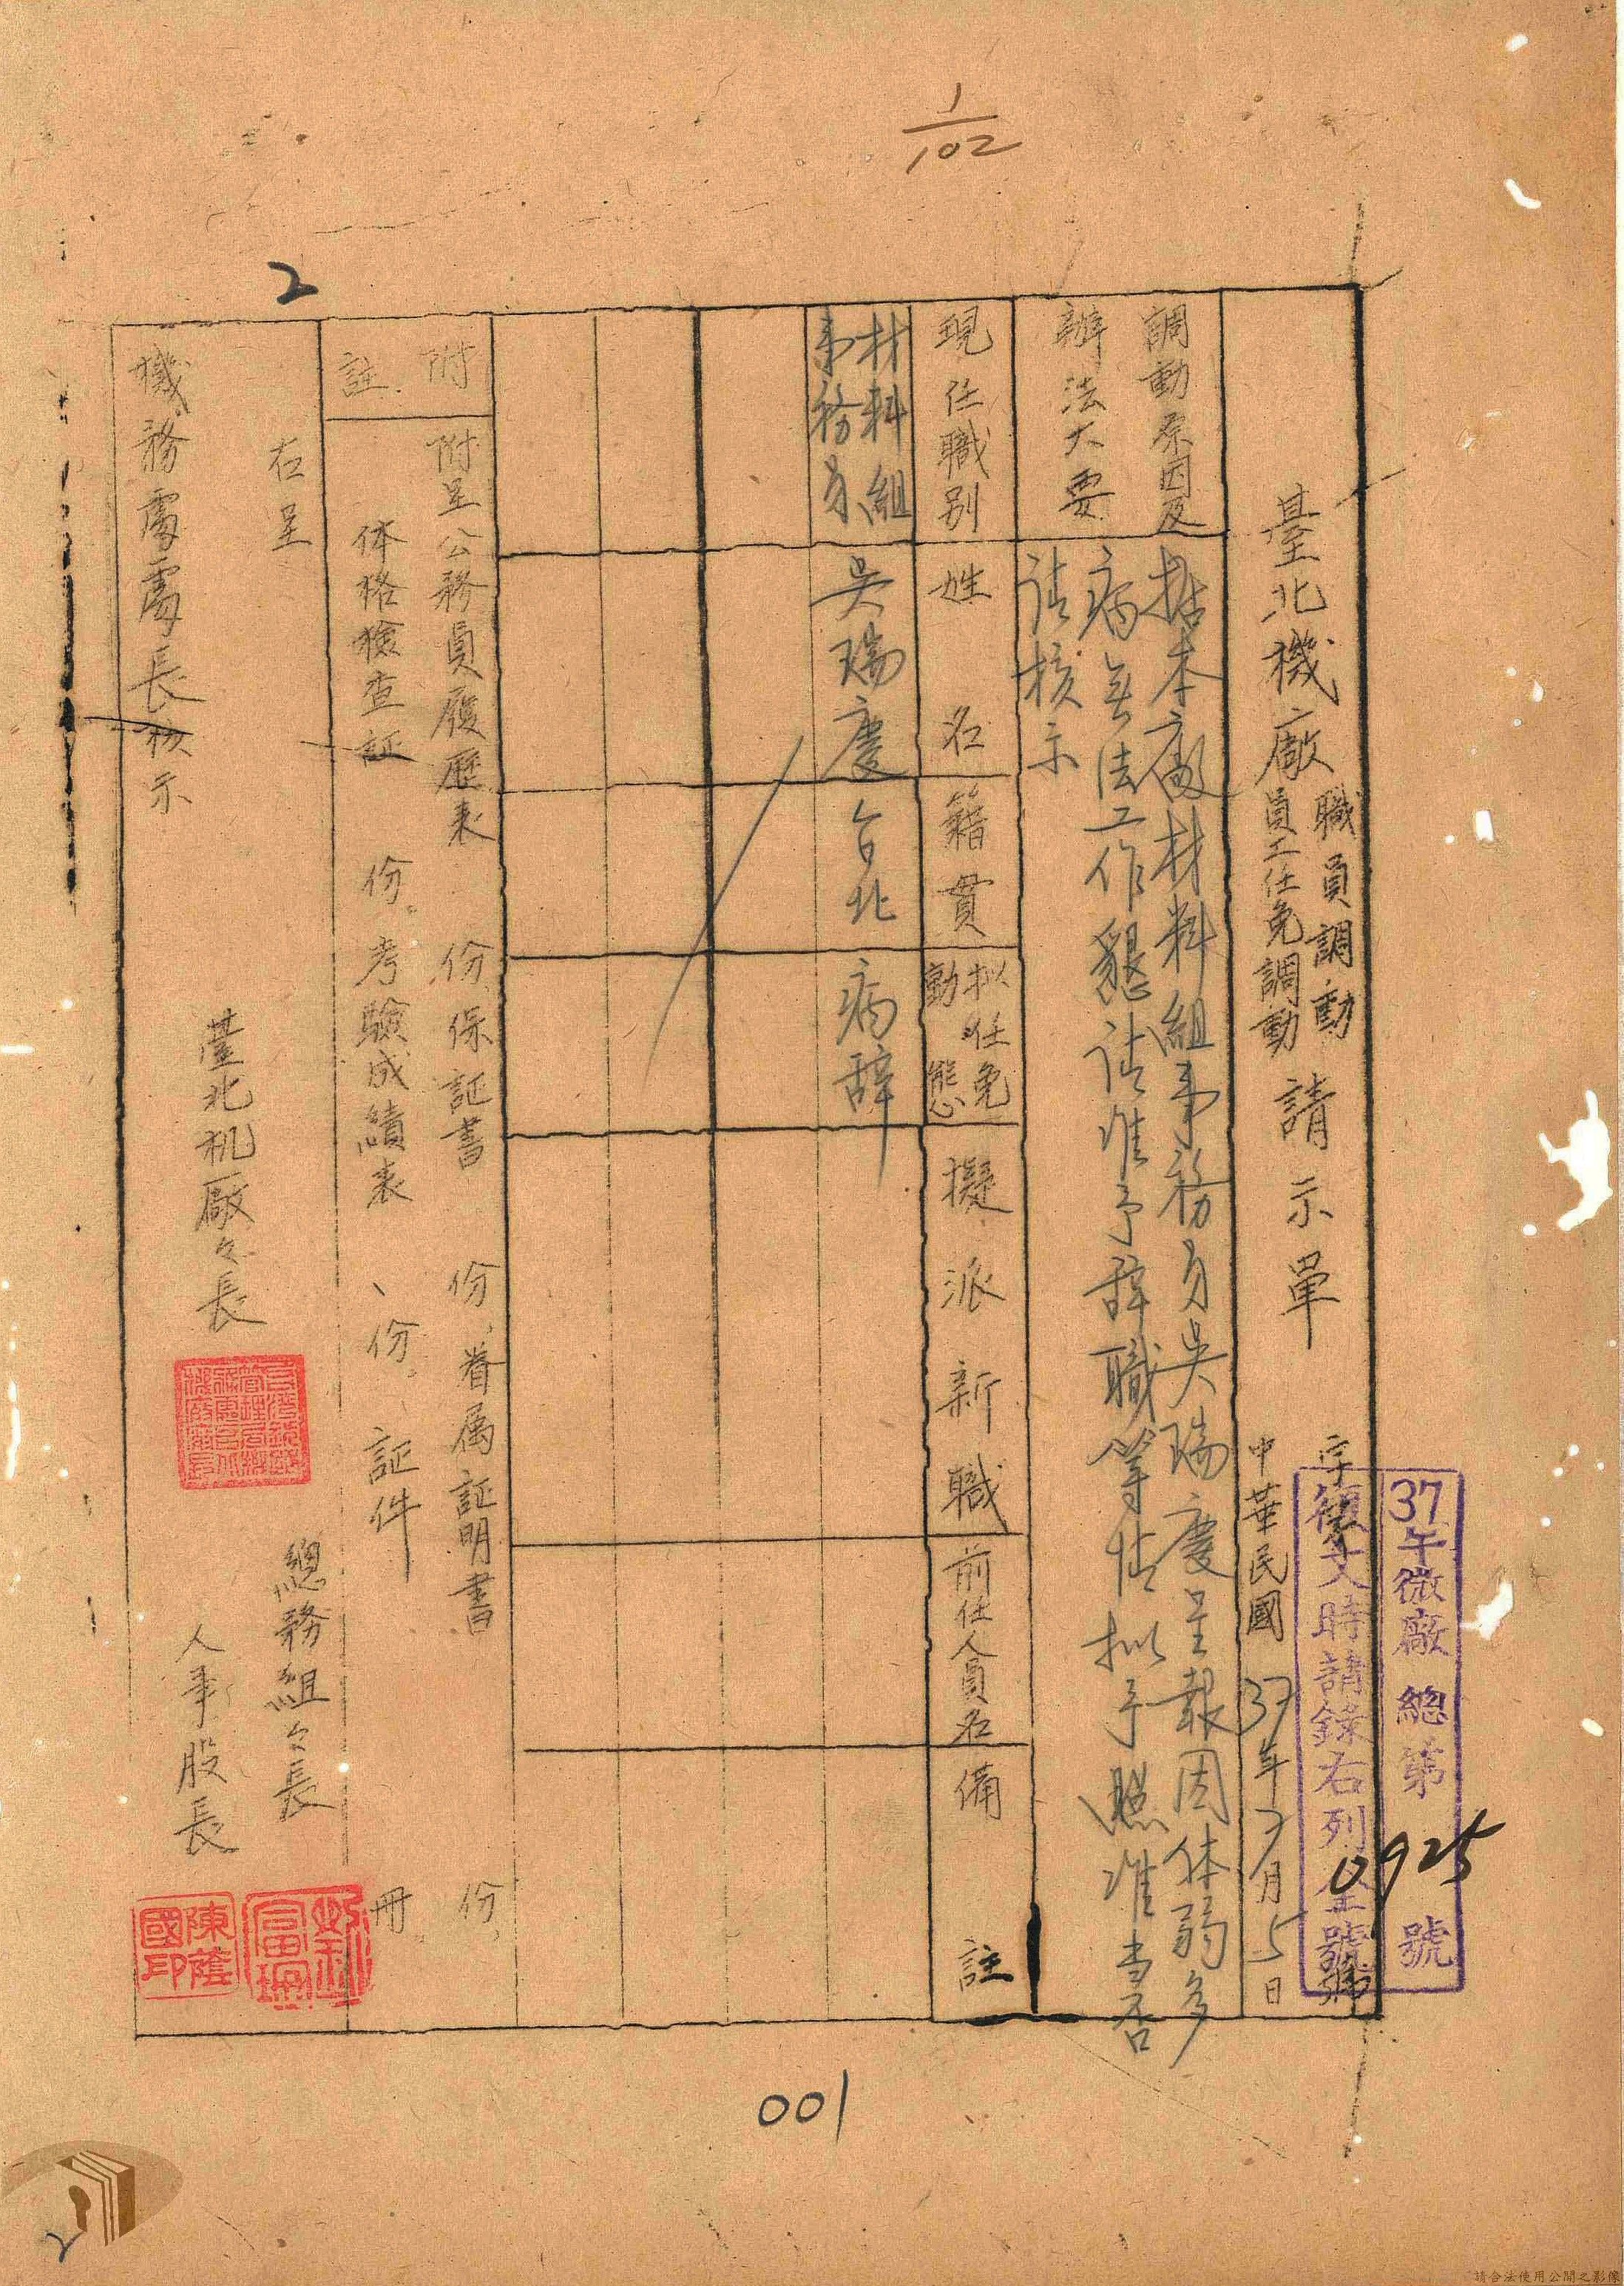 1/102
2
37午微廠總第0925號
復文時請錄右列全號
臺北機廠職員調動員工任免調動請示單
字第 號
中華民國37年7月5日
調動原因及
辦法大要
据本廠材料組事務員吳瑞慶呈報因体弱多
病無法工作懇請准予辞職等情拟予照准当否
請核示
現任職別
姓名
籍貫
拟任免
動態
擬派新職
前任人員名
備註
材料組
事務員
吳瑞慶
台北
病辞
附註
附呈公務員履歷表 份、保証書 份、眷属証明書 份、
体格檢查証 份、考驗成績表 、份、証件 冊
右呈
機務處處長核示
臺北机廠々長
總務組々長
人事股長
陳蔭
國印
001
2
請合法使用公開之影像